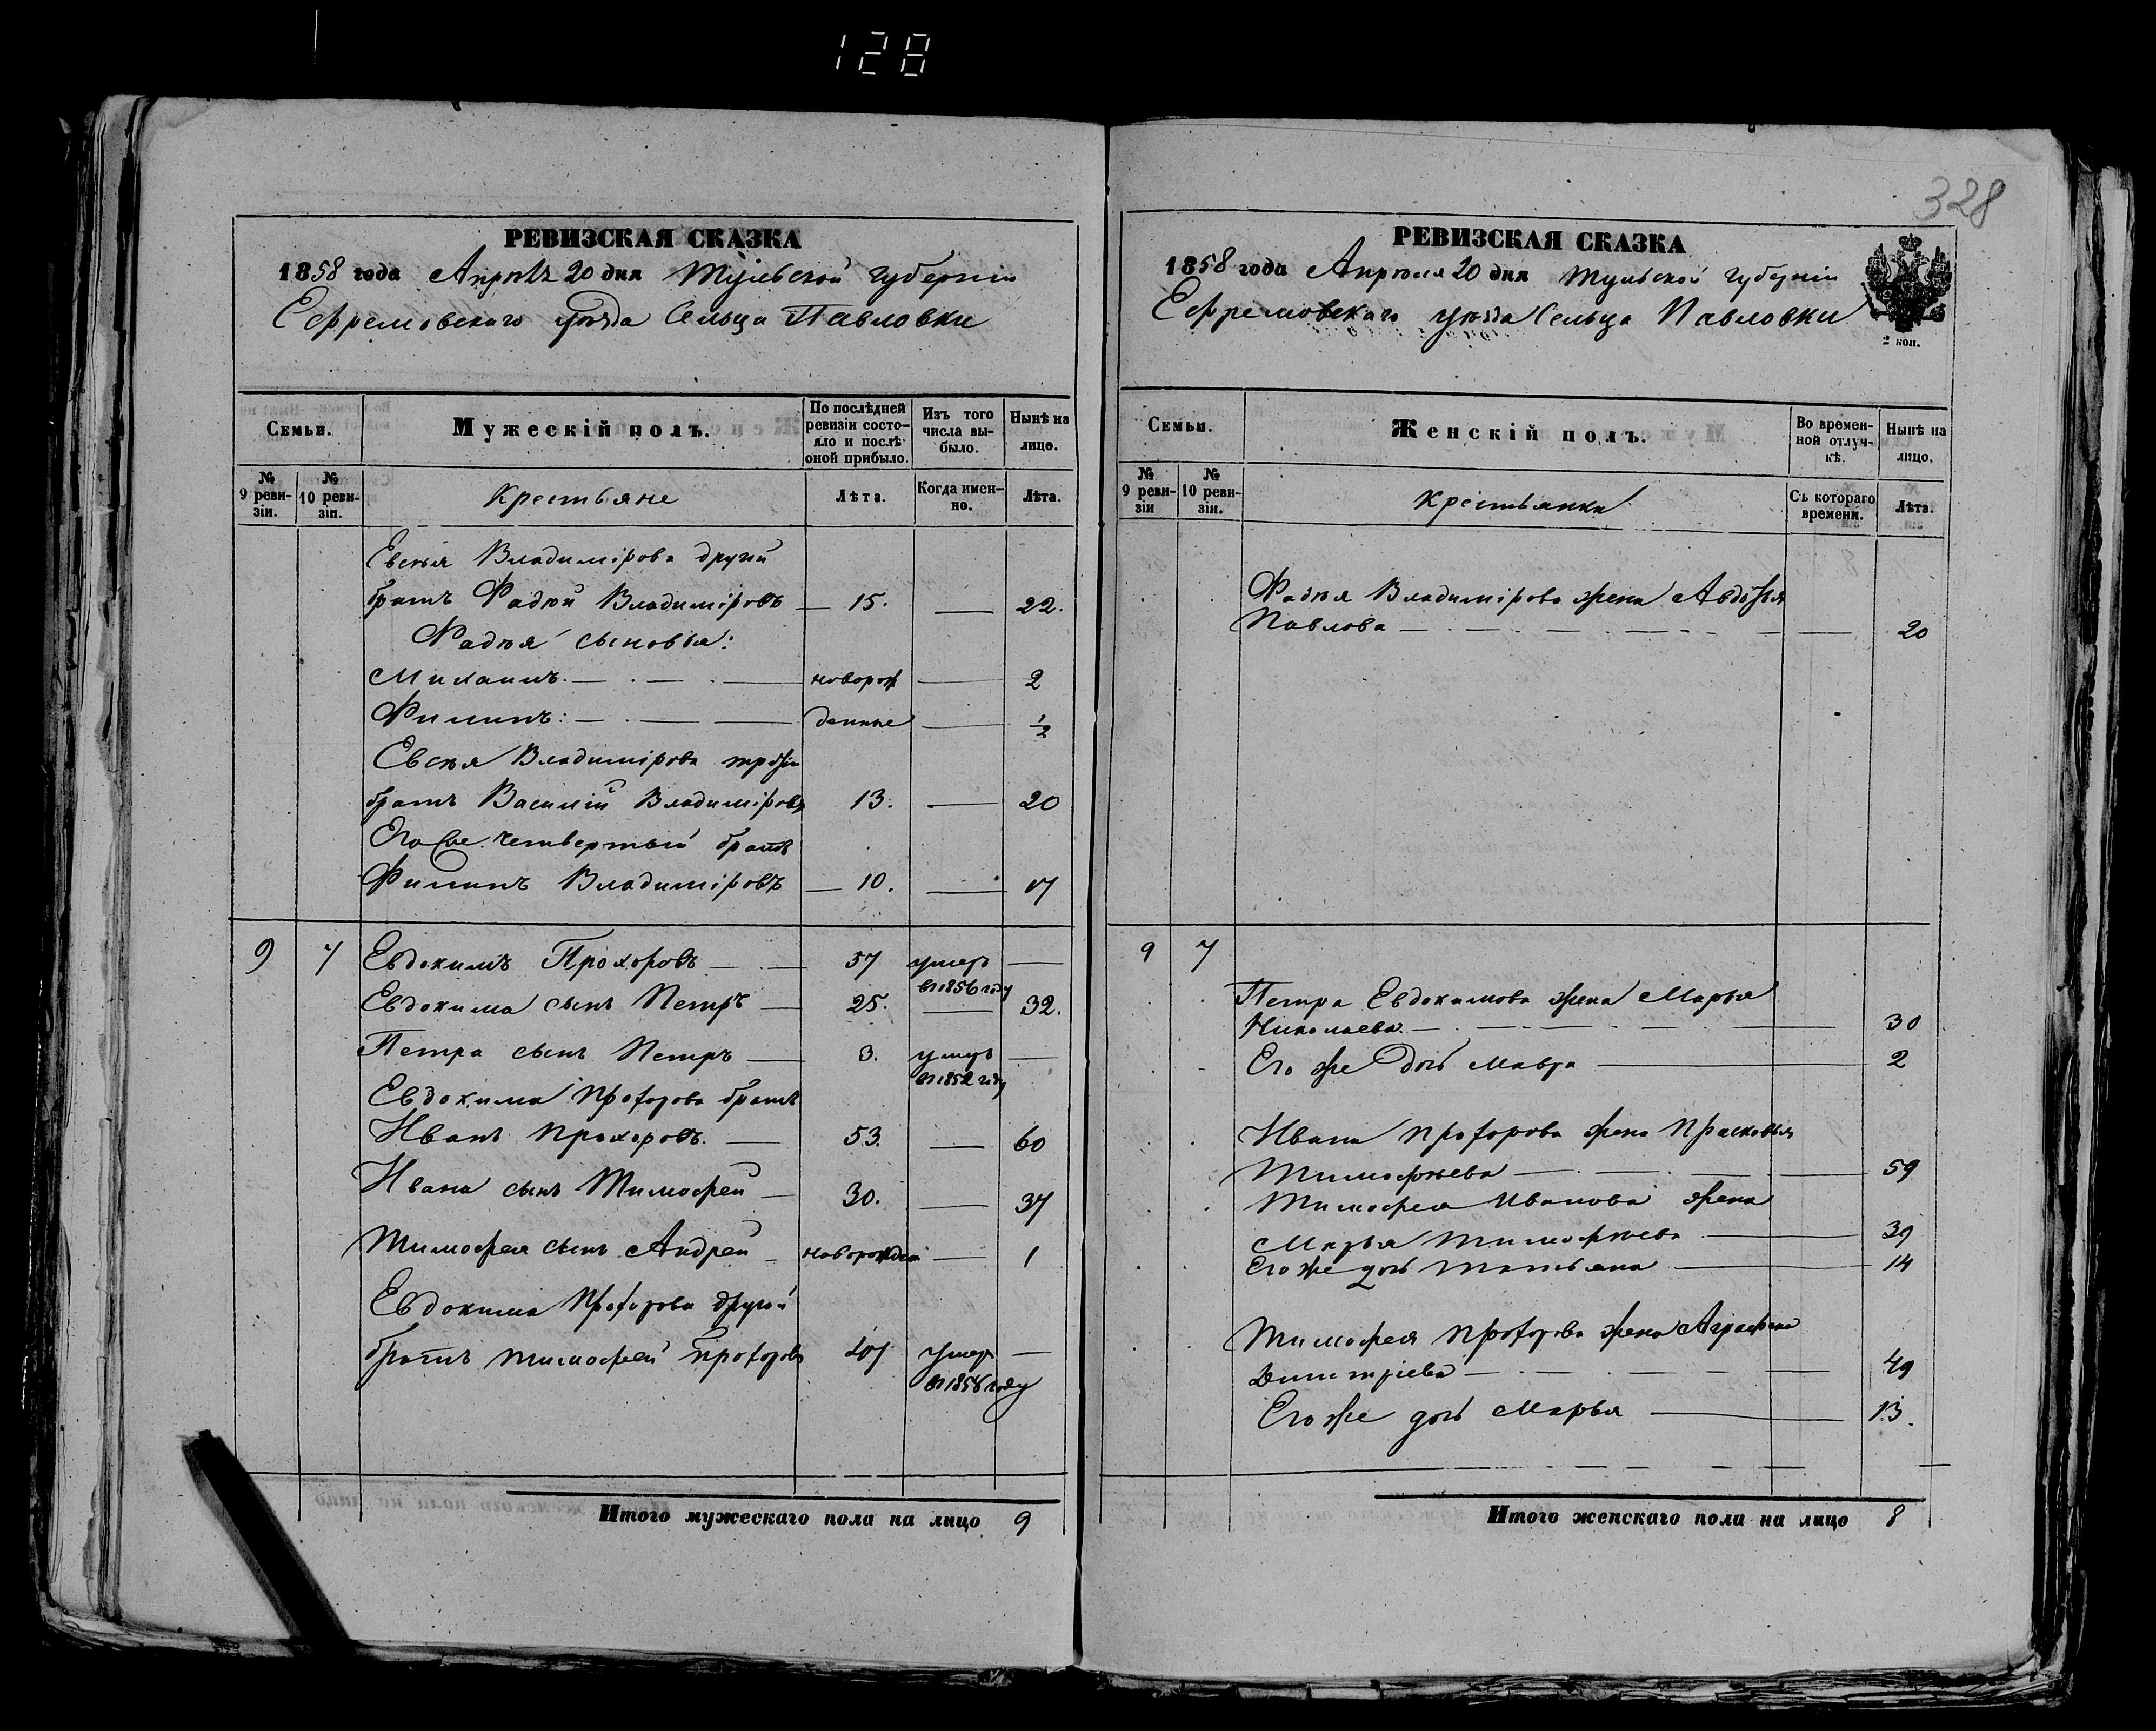 128
328
РЕВИЗСКАЯ СКАЗКА
1858 года Апрѣля 20 дня Тульской губерніи
Ефремовскаго уѣзда Сельца Павловки
Семьи.
Мужескій полъ.
По послѣдней ревизіи состояло и послѣ оной прибыло.
Изъ того числа выбыло.
Нынѣ на лицо.
№ 9 ревизіи.
№ 10 ревизіи.
Крестьяне
Лѣта.
Когда именно.
Лѣта.
Евсѣя Владимірова другій
братъ Фадѣй Владиміровъ — 15. — 22.
Фадѣя сыновья:
Михаилъ — новорож — 2
Филипъ: — денные — 1/2
Евсѣя Владимірова третій
братъ Василій Владиміровъ 13. — 20
Его же четвертый братъ
Филипъ Владиміровъ — 10. — 17
9 7 Евдокимъ Прохоровъ — 57 умеръ —
в 1856 году
Евдокима сынъ Петръ — 25. — 32.
Петра сынъ Петръ — 3. умеръ —
в 1852 году
Евдокима Прохорова братъ
Иванъ Прохоровъ. — 53. — 60
Ивана сынъ Тимофей — 30. — 37
Тимофея сынъ Андрей — новорожден — 1
Евдокима Прохорова другой
братъ Тимофей Прохоровъ 47 умеръ —
в 1856 году
Итого мужескаго пола на лицо 9
РЕВИЗСКАЯ СКАЗКА
1858 года Апрѣля 20 дня Тульской губерніи
Ефремовскаго уѣзда Сельца Павловки
2 коп.
Семьи.
Женскій полъ.
Во временной отлучкѣ.
Нынѣ на лицо.
№ 9 ревизіи
№ 10 ревизіи.
Крестьянки
Съ котораго времени.
Лѣта.
Фадѣя Владимірова жена Авдотья
Павлова — 20
9 7
Петра Евдокимова жена Марья
Николаева — 30
Его же дочь Мавра — 2
Ивана Прохорова жена Прасковья
Тимофѣева — 59
Тимофея Иванова жена
Марья Тимофѣева — 39
Его же дочь Татьяна — 14
Тимофея Прохорова жена Аграфена
Дмитріева — 49
Его же дочь Марья — 13.
Итого женскаго пола на лицо 8